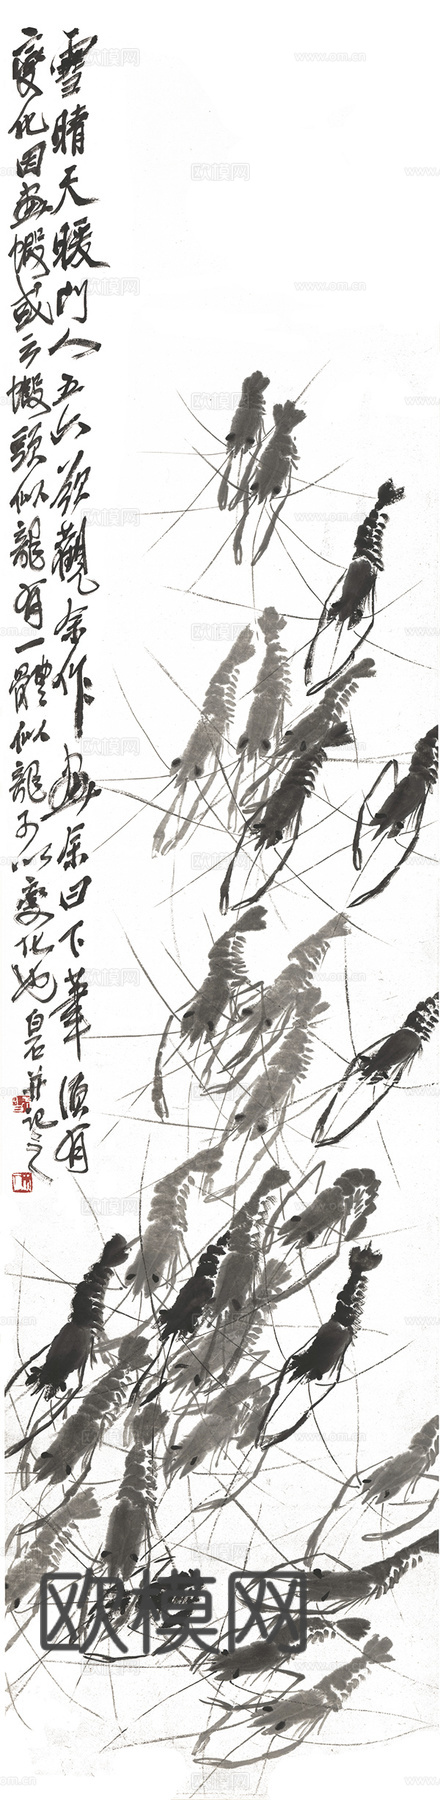 雪晴天暖門人五六欲觀余作畫余曰下筆須有
變化因畫蝦或云蝦頭似龍有一體似龍子以變化也
白石并記之
欧模网
www.om.cn